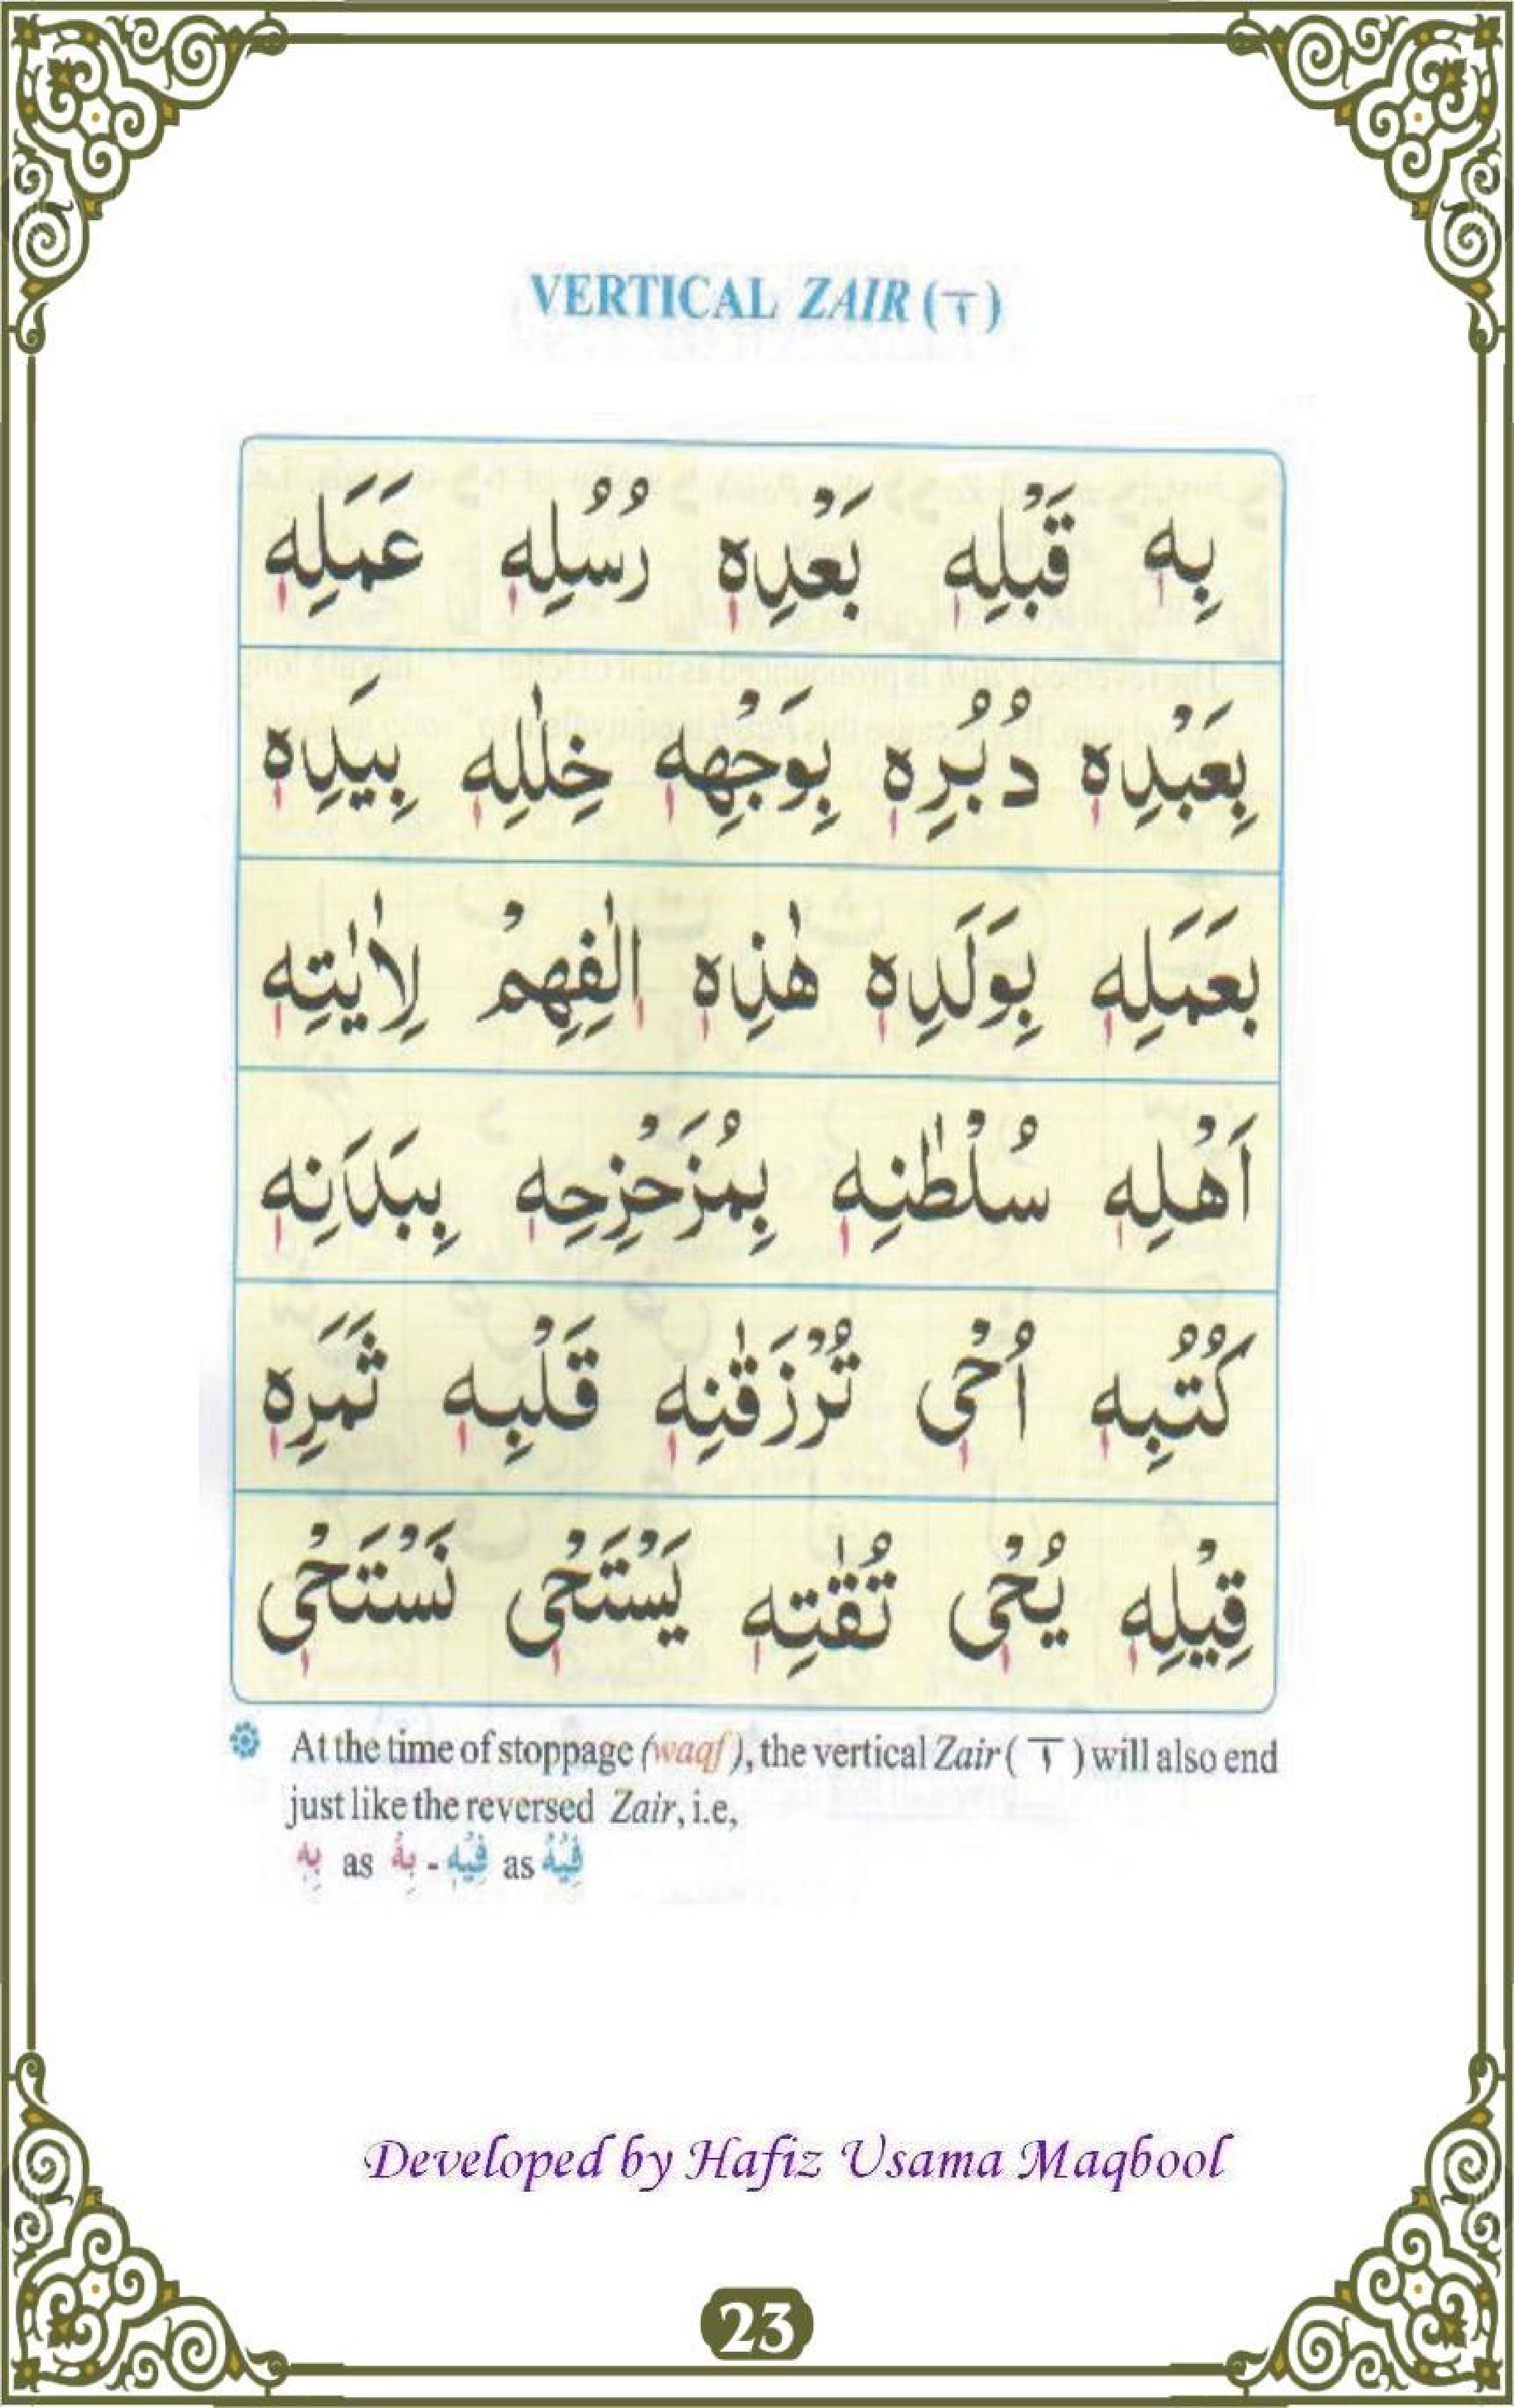 VERTICAL ZAIR ( ٖ )
بِهٖ قَبْلِهٖ بَعْدِهٖ رُسُلِهٖ عَمَلِهٖ
بِعَبْدِهٖ دُبُرِهٖ بِوَجْهِهٖ خِلٰلِهٖ بِيَدِهٖ
بِعَمَلِهٖ بِوَلَدِهٖ هٰذِهٖ اٖلٰفِهِمْ لِاٰيٰتِهٖ
اَهْلِهٖ سُلْطٰنِهٖ بِمُزَحْزِحِهٖ بِبَدَنِهٖ
كُتُبِهٖ اُحْىٖ تُرْزَقٰنِهٖ قَلْبِهٖ ثَمَرِهٖ
قِيْلِهٖ يُحْىٖ تُقٰتِهٖ يَسْتَحْىٖ نَسْتَحْىٖ
At the time of stoppage (waqf), the vertical Zair ( ٖ ) will also end
just like the reversed Zair, i.e,
بِهٖ as بِهْ - فِيْهِ as فِيْهْ
Developed by Hafiz Usama Maqbool
23